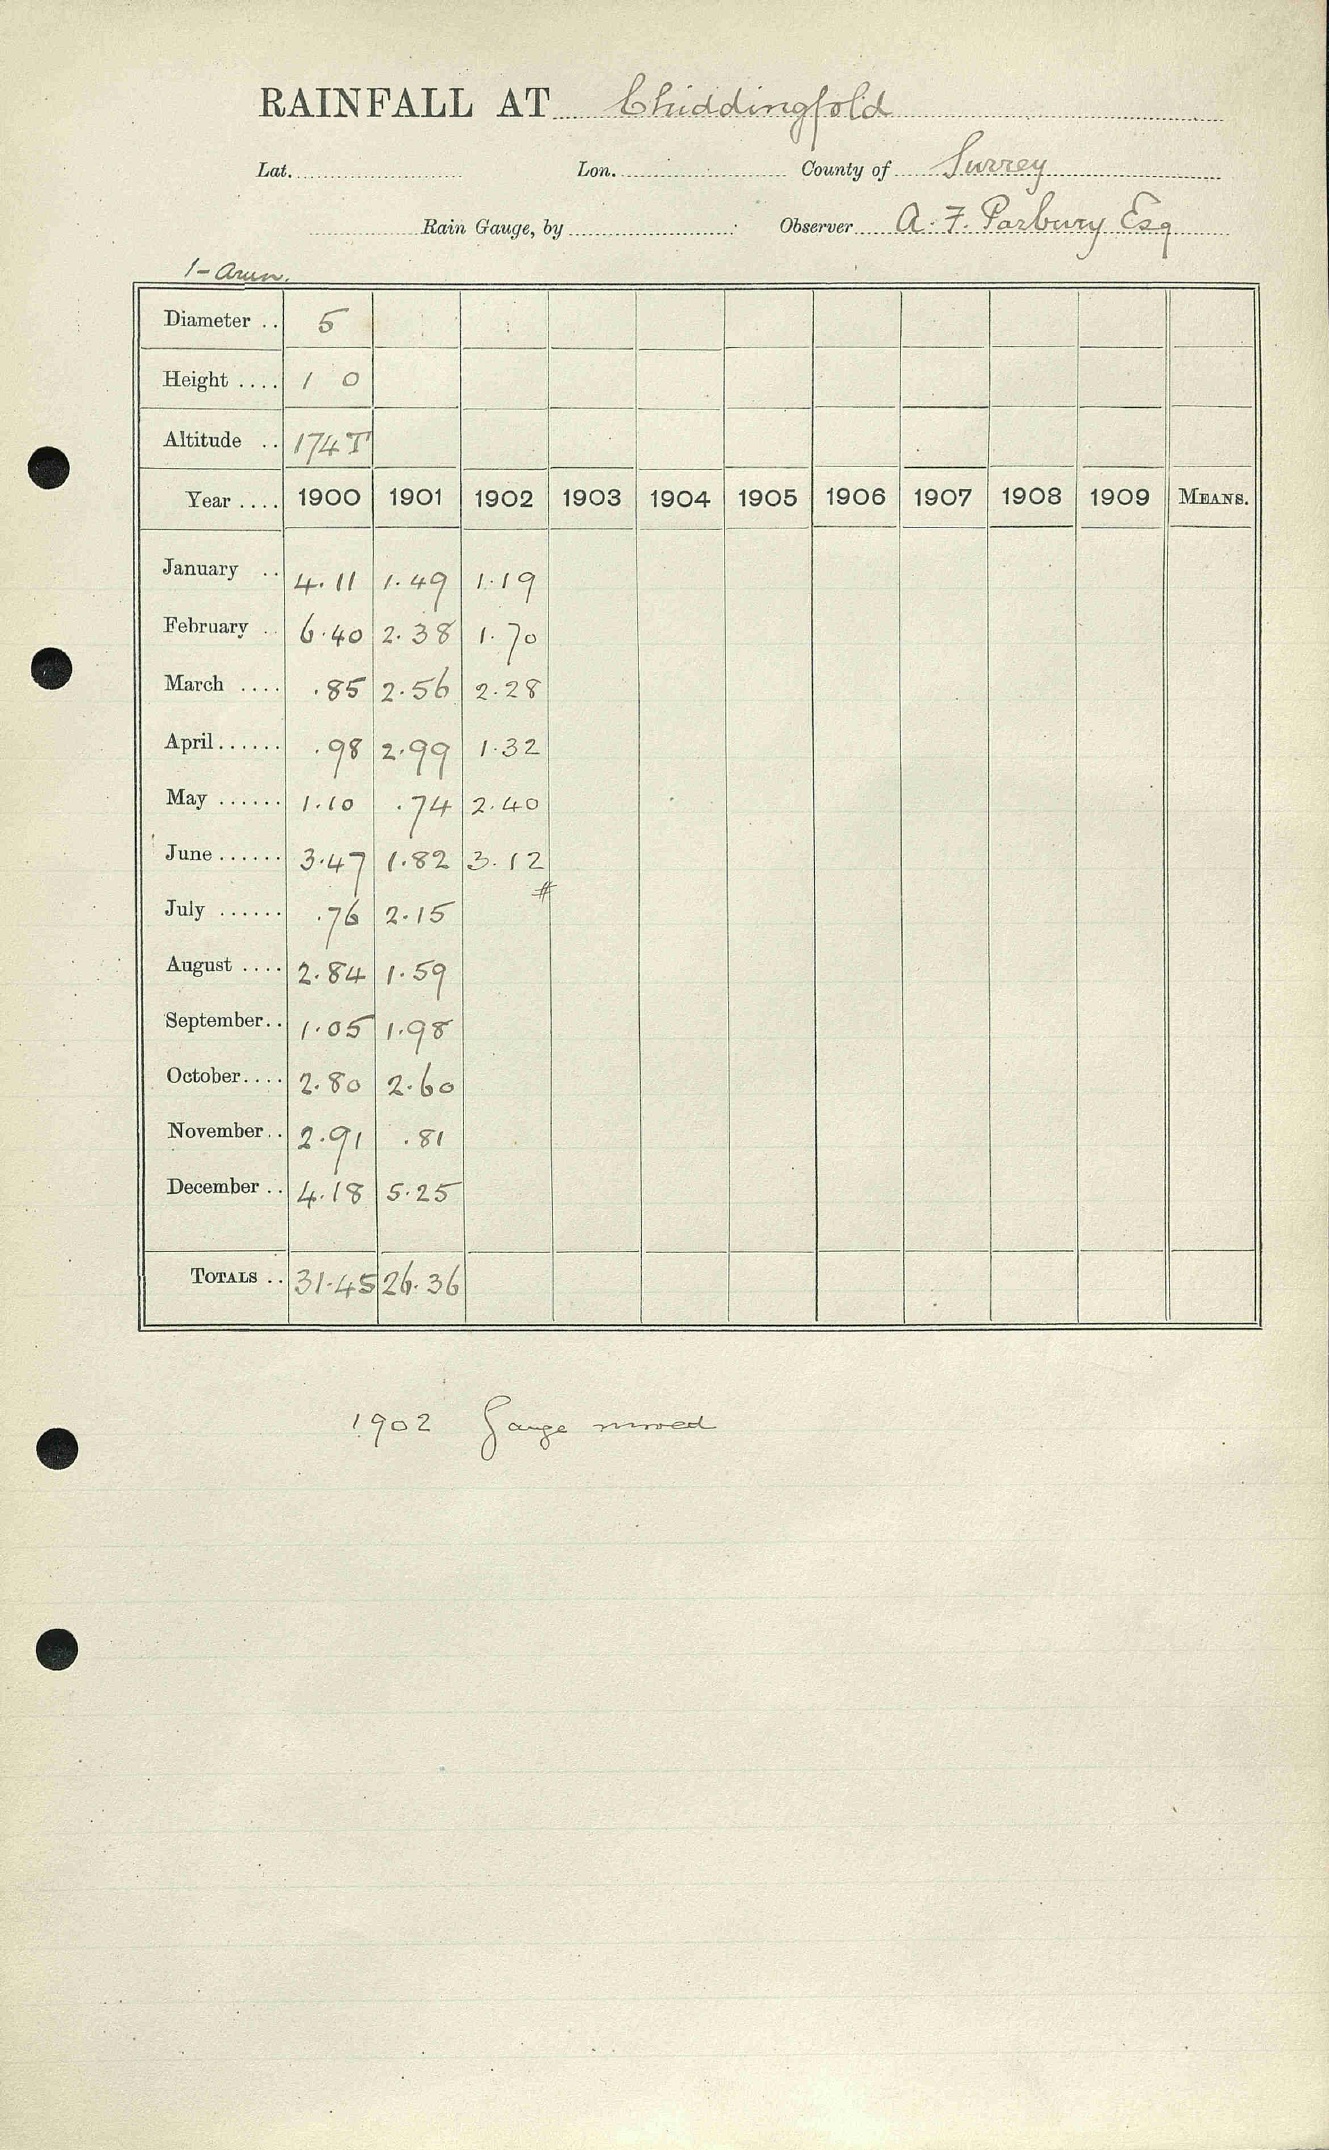 RAINFALL AT Chiddingfold
Lat. Lon. County of Surrey
Rain Gauge, by Observer A. F. Parbury Esq
1-Arun.
Diameter .. 5
Height .... 1 0
Altitude .. 174 T
Year .... 1900 1901 1902 1903 1904 1905 1906 1907 1908 1909 MEANS.
January .. 4.11 1.49 1.19
February .. 6.40 2.38 1.70
March .... .85 2.56 2.28
April...... .98 2.99 1.32
May ...... 1.10 .74 2.40
June...... 3.47 1.82 3.12
#
July ...... .76 2.15
August .... 2.84 1.59
September.. 1.05 1.98
October.... 2.80 2.60
November.. 2.91 .81
December .. 4.18 5.25
TOTALS .. 31.45 26.36
1902 Gauge moved